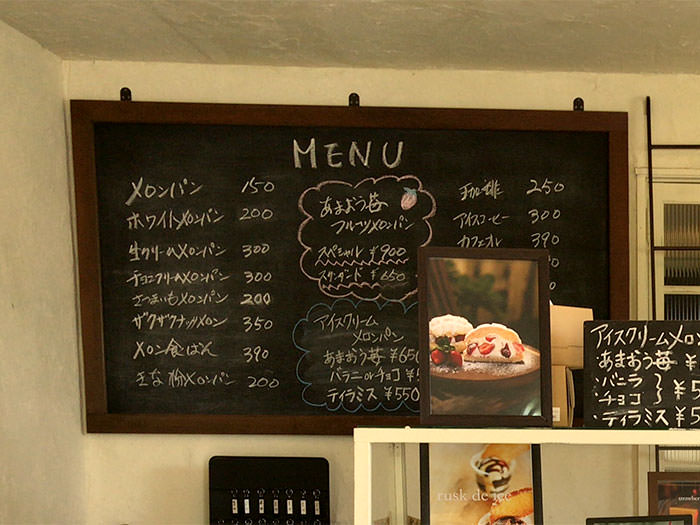 MENU
メロンパン 150
ホワイトメロンパン 200
生クリームメロンパン 300
チョコクリームメロンパン 300
さつまいもメロンパン 200
ザクザクナッツメロン 350
メロン食ぱん 390
きな粉メロンパン 200
あまおう苺
フルーツメロンパン
スペシャル ¥900
スタンダード ¥650
アイスクリーム
メロンパン
あまおう苺 ¥650
バラニorチョコ ¥5
ティラミス ¥550
珈琲 250
アイスコーヒー 300
カフェオレ 390
アイスクリームメロン
・あまおう苺 ¥
・バニラ
・チョコ ¥5
・ティラミス ¥5
rusk de ice